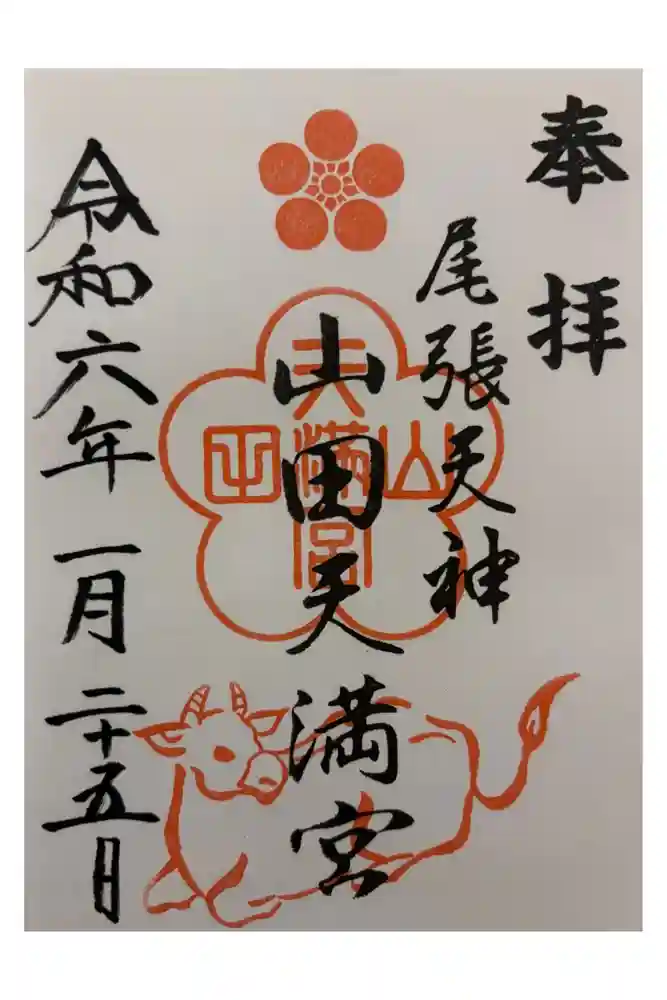 奉拝
尾張天神
山田天満宮
山田
天満宮
令和六年一月二十五日